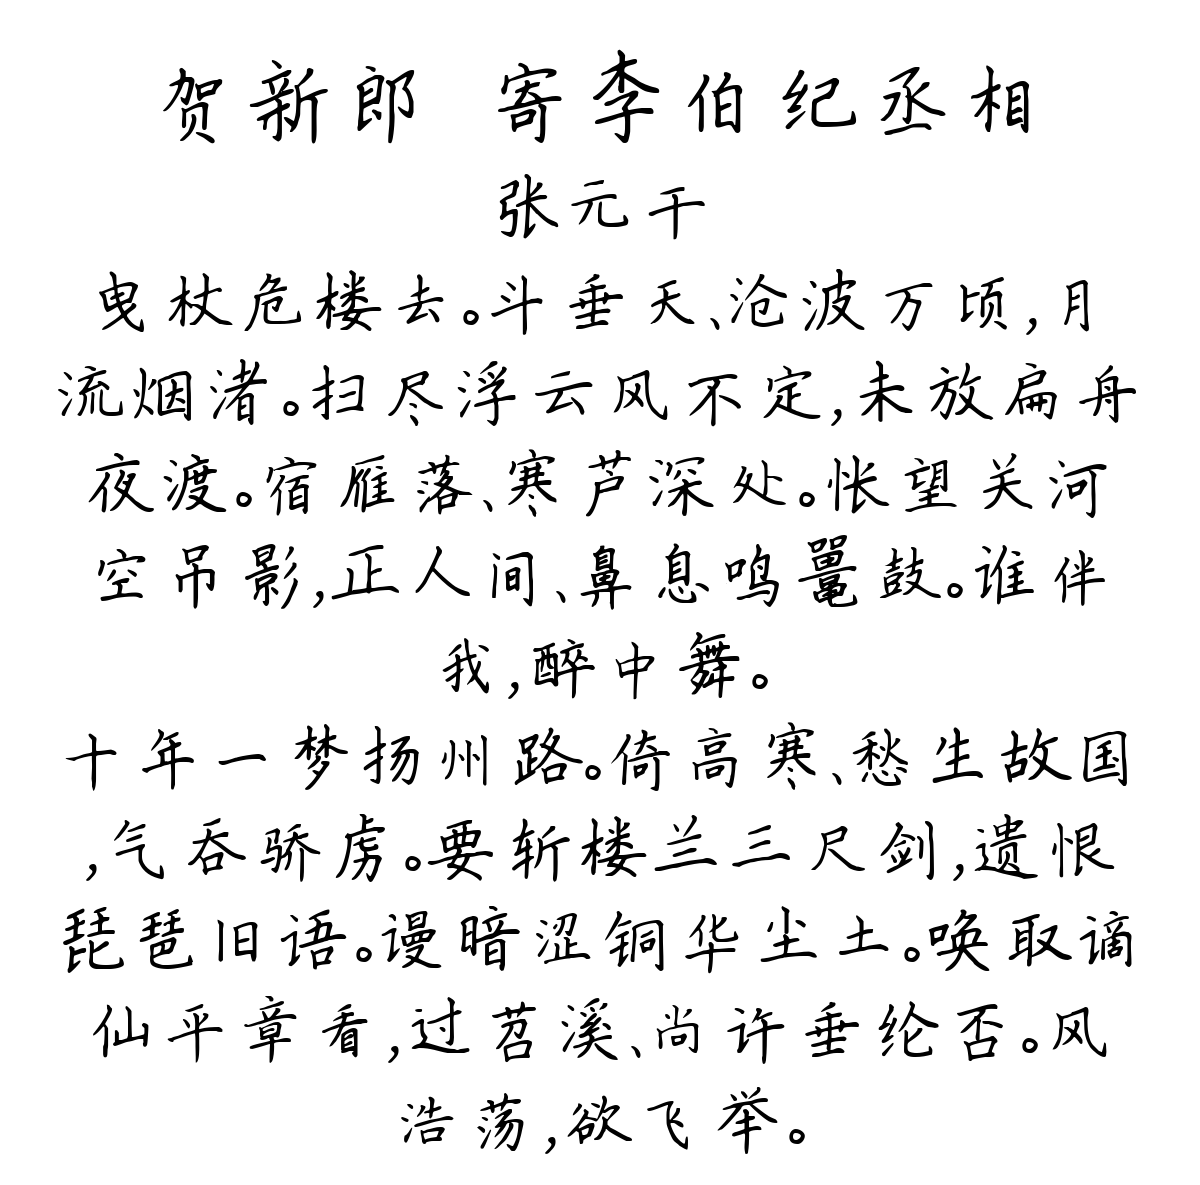 贺新郎 寄李伯纪丞相
张元干
曳杖危楼去。斗垂天、沧波万顷,月
流烟渚。扫尽浮云风不定,未放扁舟
夜渡。宿雁落、寒芦深处。怅望关河
空吊影,正人间、鼻息鸣鼍鼓。谁伴
我,醉中舞。
十年一梦扬州路。倚高寒、愁生故国
,气吞骄虏。要斩楼兰三尺剑,遗恨
琵琶旧语。谩暗涩铜华尘土。唤取谪
仙平章看,过苕溪、尚许垂纶否。风
浩荡,欲飞举。